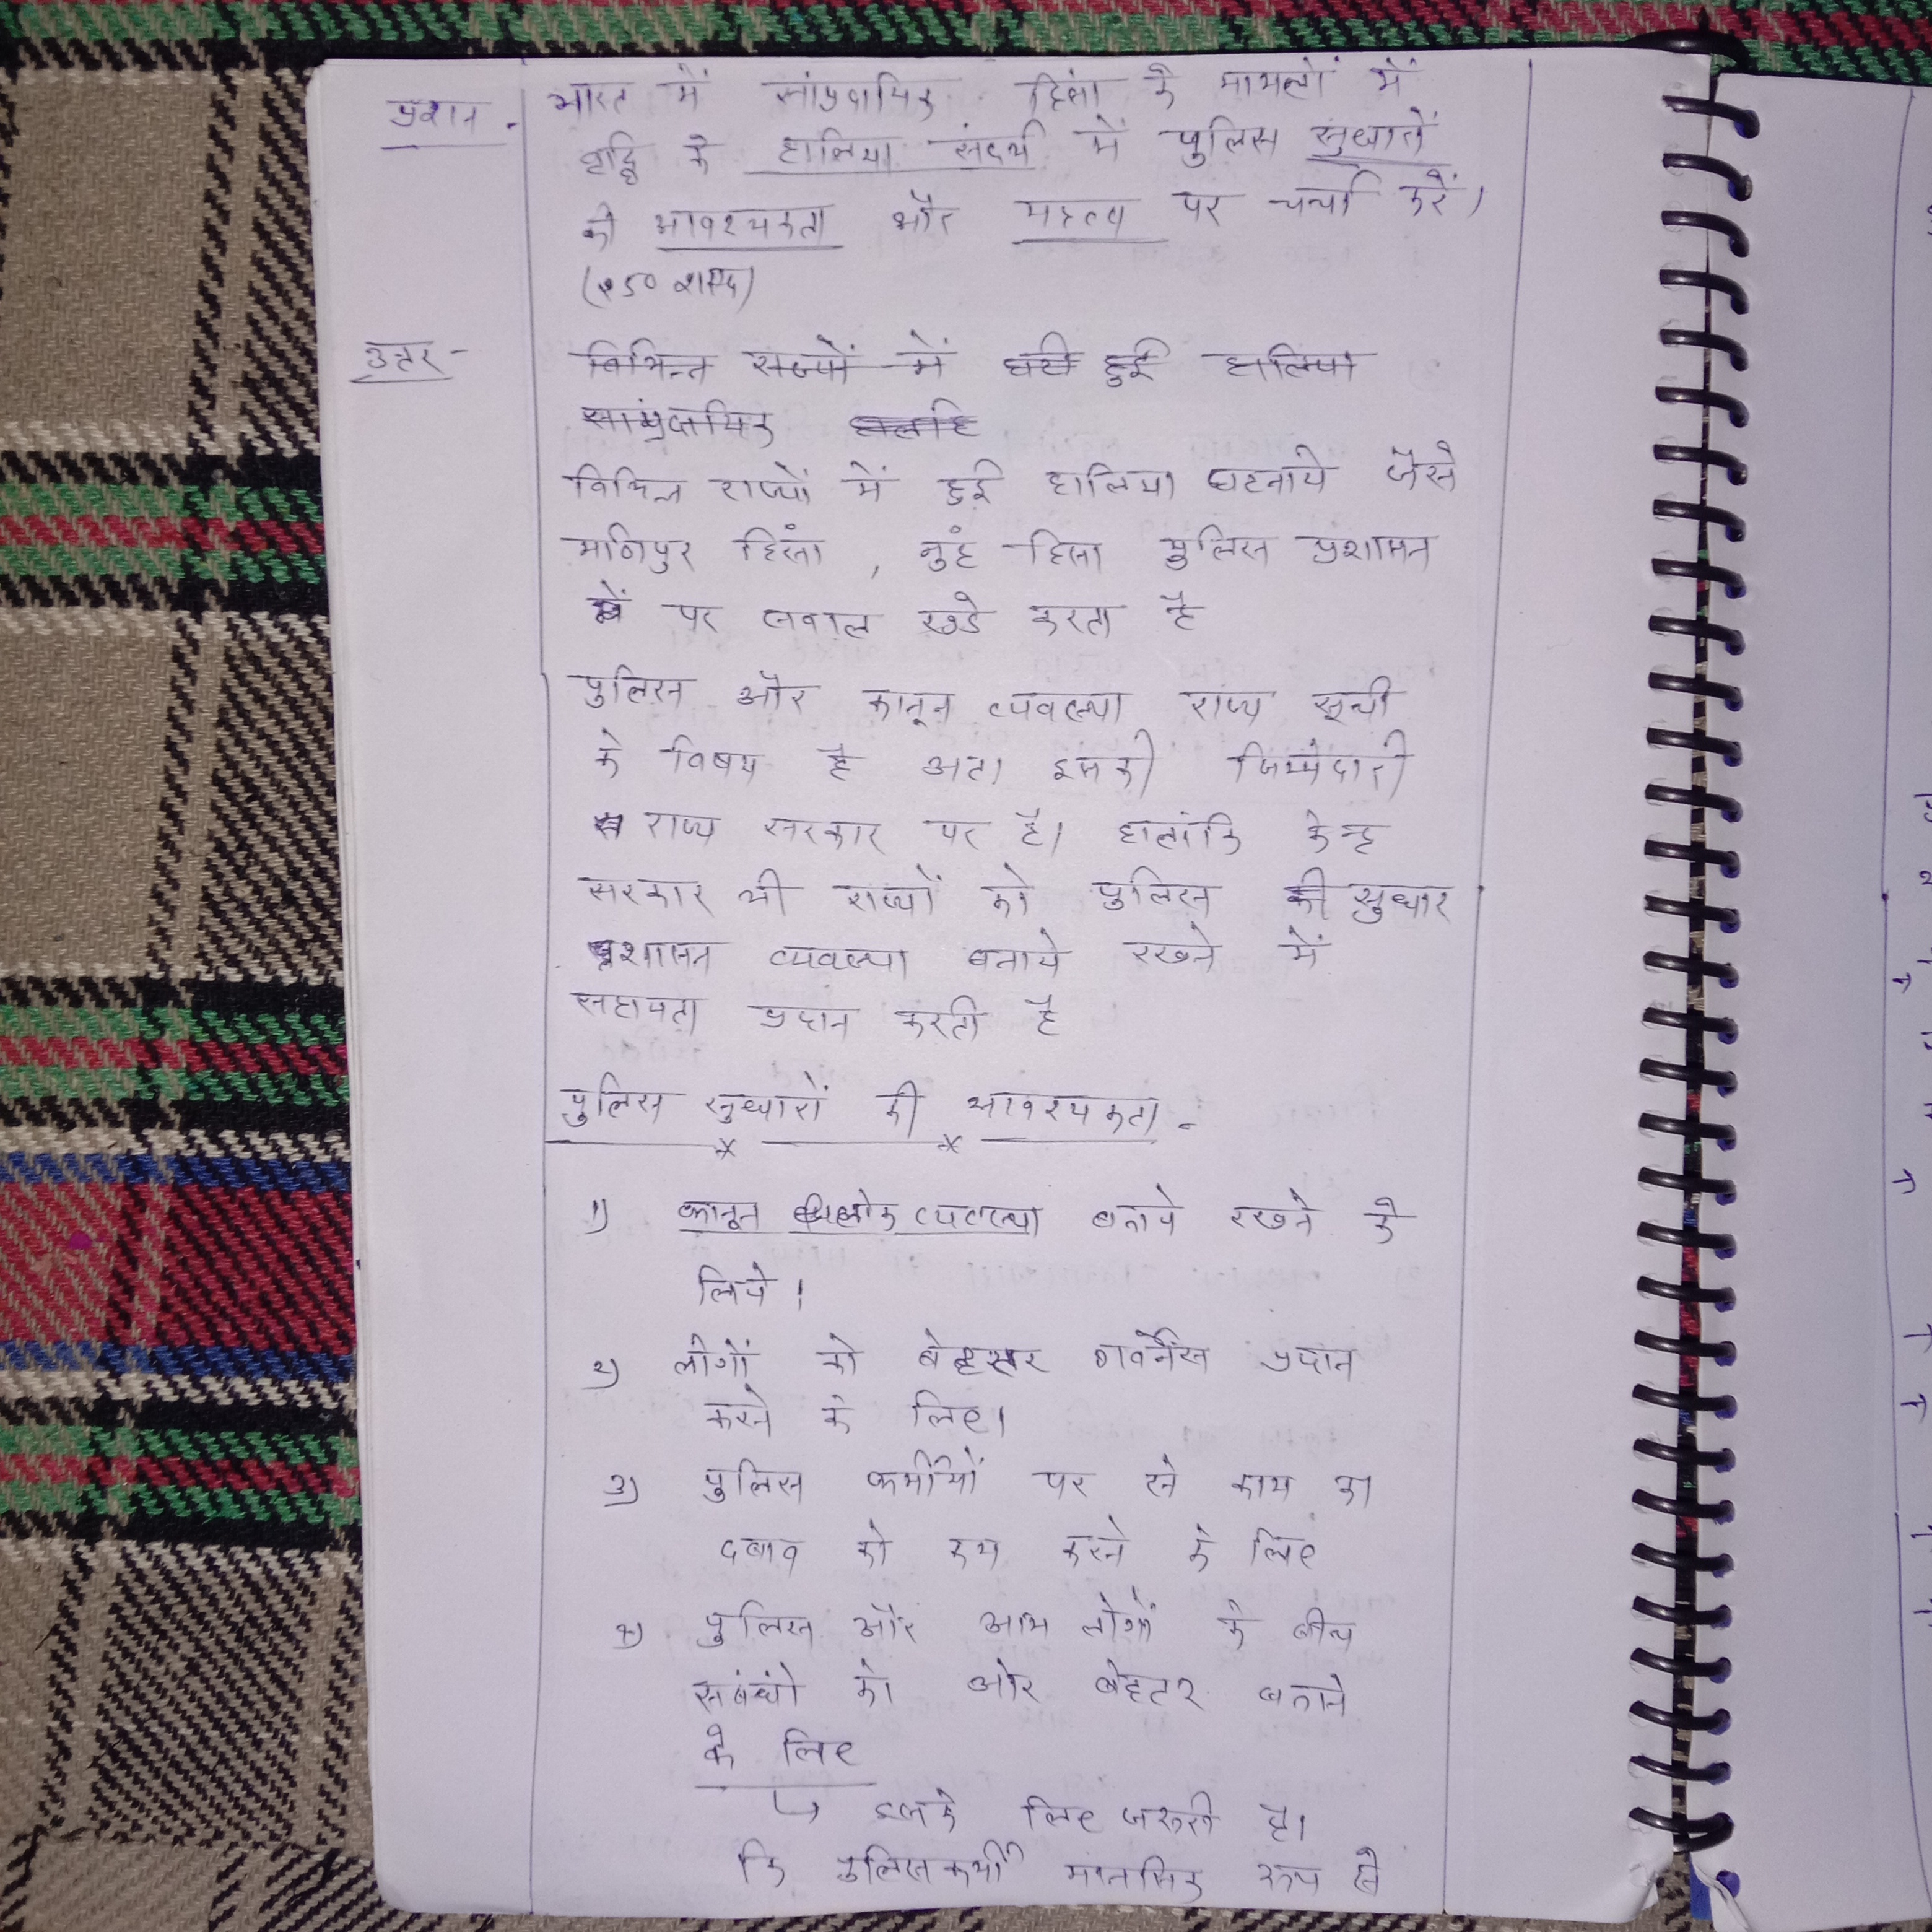 प्रशन - भारत में सांप्रदायिक हिंसा के मामलों में
वृद्धि के हालिया संदर्भ में पुलिस सुधारों
की आवश्यकता और महत्व पर चर्चा करें।
(२५० शब्द)
उत्तर - विभिन्न राज्यों में घटी हुई हालिया
साम्प्रदायिक
विभिन्न राज्यों में हुई हालिया घटनाये जैसे
मणिपुर हिंसा , नुंह हिंसा पुलिस प्रशासन
पर सवाल खडे करता है
पुलिस और कानून व्यवस्था राज्य सूची
के विषय है अतः इसकी जिम्मेदारी
राज्य सरकार पर है। हालांकि केन्द्र
सरकार भी राज्यों को पुलिस की सुधार
प्रशासन व्यवस्था बनाये रखने में
सहायता प्रदान करती है
पुलिस सुधारों की आवश्यकता -
1) कानून व्यवस्था बनाये रखने के
लिये।
२) लोगों को बेहतर गवर्नेंस प्रदान
करने के लिए।
3) पुलिस कर्मीयों पर से काम का
दबाव को कम करने के लिए
४) पुलिस और आम लोगों के बीच
सबंधो को और बेहतर बनाने
के लिए
↳ इसके लिए जरूरी है।
कि पुलिसकर्मी मानसिक रूप से